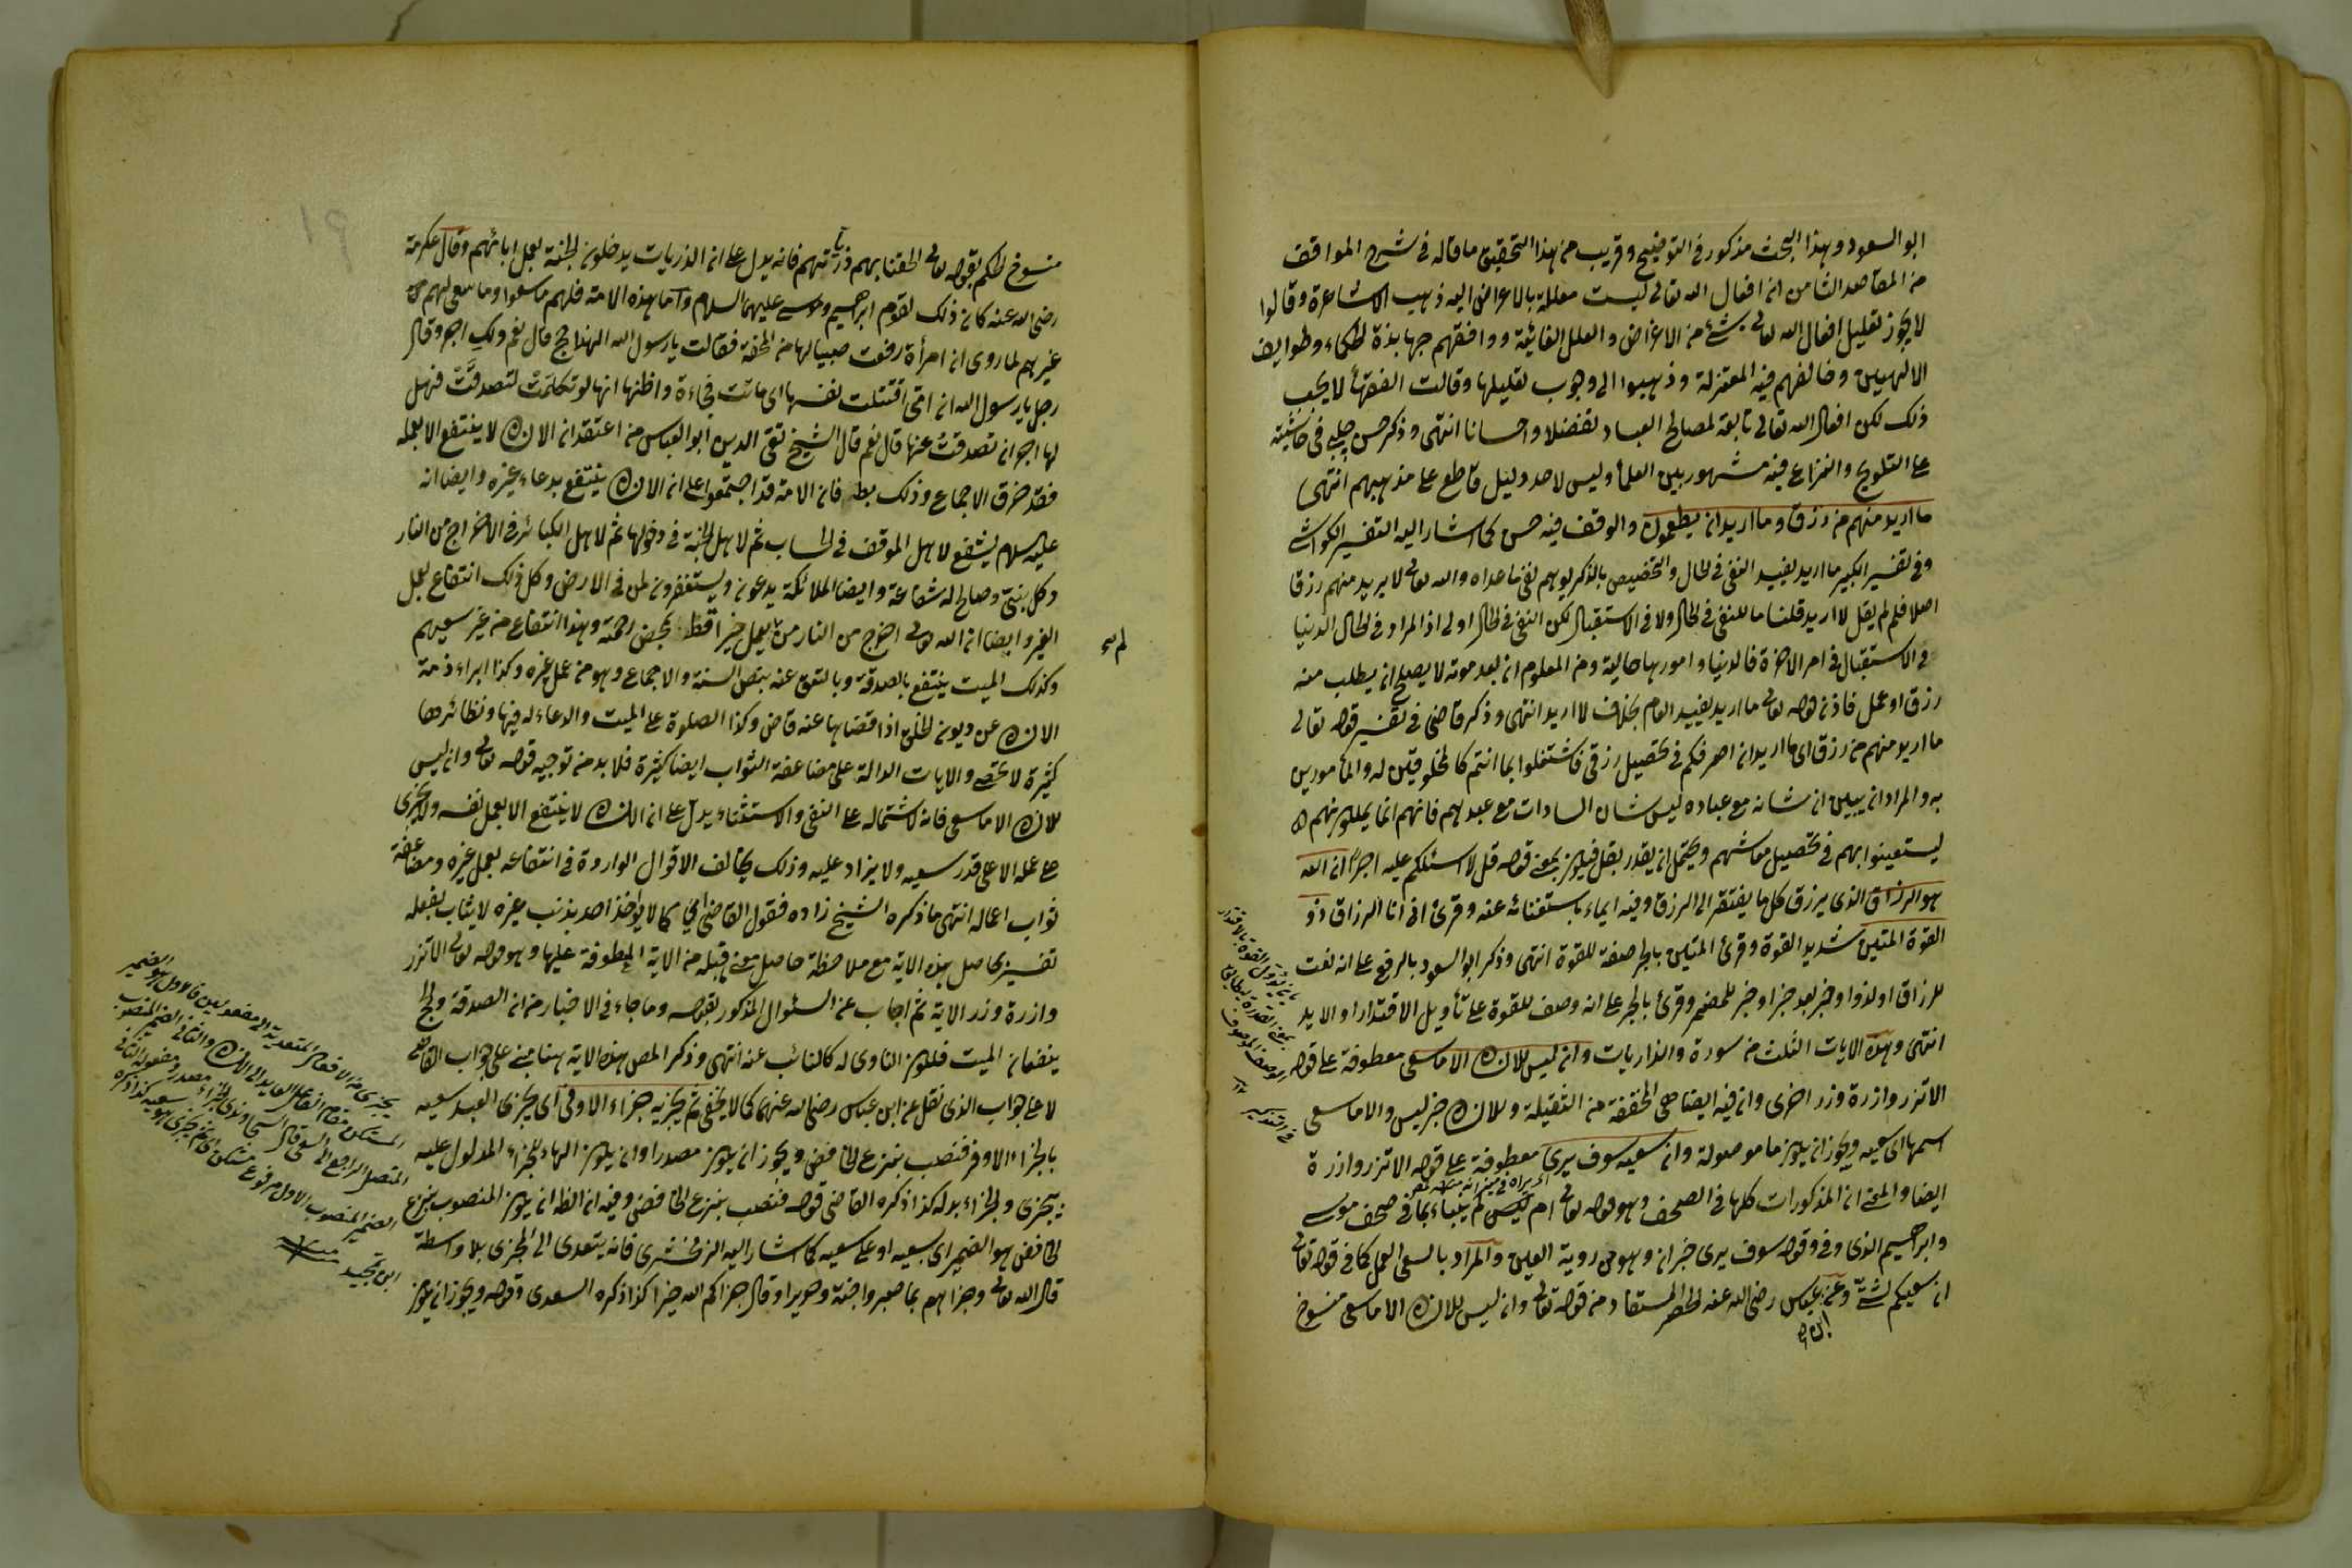 ابو السعود وهذا البحث مذكور في التوضيح وقريب من هذا التحقيق ما قاله في شرح المواقف
من المقاصد الثامن ان افعال الله تعالى ليست معللة بالاغراض اليه ذهب الاشاعرة وقالوا
لا يجوز تعليل افعال الله تعالى بشئ من الاغراض والعلل الغائية ووافقهم جهابذة الحكماء وطوايف
الالهيين وخالفهم فيه المعتزلة وذهبوا الى وجوب تعليلها وقالت الفقهاء لا يجب
ذلك لكن افعال الله تعالى تابعة لمصالح العباد تفضلا واحسانا انتهى وذكر حسن چلبي في حاشيته
على التلويح والنزاع فيه مشهور بين العلماء وليس لاحد دليل قاطع على مذهبهم انتهى
ما اريد منهم من رزق وما اريد ان يطعمون والوقف فيه حسن كما اشار اليه التفسير الكواشي
وفي تفسير الكبير ما اريد يفيد النفي في الحال والتخصيص بالذكر يوهم نفي ما عداه والله تعالى لا يريد منهم رزقا
اصلا فلم لم يقل لا اريد قلنا ما للنفي في الحال ولا في الاستقبال لكن النفي في الحال اولى اذ المراد في الحال الدنيا
في الاستقبال في امر الآخرة فالدنيا وامورها حالية ومن المعلوم ان بعد موته لا يصلح ان يطلب منه
رزق او عمل فاذن قوله تعالى ما اريد يفيد العام بخلاف لا اريد انتهى وذكر قاضى في تفسير قوله تعالى
ما اريد منهم من رزق اى ما اريد ان اصرفكم في تحصيل رزقي فاشتغلوا بما انتم كالمخلوقين له والمأمورين
به والمراد ان يبين ان شانه مع عباده ليس شان السادات مع عبيدهم فانهم انما يملكونهم
ليستعينوا بهم في تحصيل معاشهم ويحتمل ان يقدر بقل فيكون بمعنى قوله قل لا اسئلكم عليه اجرا ان الله
هو الرزاق الذى يرزق كل ما يفتقر الى الرزق وفيه ايماء باستغنائه عنه وقرئ انى انا الرزاق ذو
القوة المتين شديد القوة وقرئ المتين بالجر صفة للقوة انتهى وذكر ابو السعود بالرفع على انه نعت
للرزاق او لذو او خبر بعد خبر او خبر للمضمر وقرئ بالجر على انه وصف للقوة على تأويل الاقتدار او الايد
انتهى وهذه الايات الثلث من سورة والذاريات وان ليس للانسان الا ما سعى معطوفة على قوله
الا تزر وازرة وزر اخرى وان فيه ايضا هى المخففة من الثقيلة وللانسان خبر ليس والا ما سعى
اسمها اى سعيه ويجوز ان يكون ما موصولة وان سعيه سوف يرى معطوفة على قوله الا تزر وازرة
ايضا والمعنى ان المذكورات كلها في الصحف وهو قوله تعالى ام لم ينبأ بما في صحف موسى
وابراهيم الذى وفى وقوله سوف يرى خبر ان وهو من روية العين والمراد بالسعى العمل كما في قوله تعالى
ان سعيكم لشتى وعن ابن عباس رضى الله عنه الحصر المستفاد من قوله تعالى وان ليس للانسان الا ما سعى منسوخ
منسوخ الحكم بقوله تعالى الحقنا بهم ذرياتهم فانه يدل على ان الذريات يدخلون الجنة بعمل ابائهم وقال عكرمة
رضى الله عنه كان ذلك لقوم ابراهيم وموسى عليهما السلام واما هذه الامة فلهم ما سعوا وما سعى لهم
غيرهم لما روى ان امرأة رفعت صبيا لها من المحفة فقالت يا رسول الله الهذا حج قال نعم ولك اجر وقال
رجل يا رسول الله ان امى اقتتلت نفسها اى ماتت فجاءة واظنها انها لو تكلمت لتصدقت فهل
لها اجر ان تصدقت عنها قال نعم قال الشيخ تقي الدين ابو العباس من اعتقد ان الانسان لا ينتفع الا بعمله
فقد خرق الاجماع وذلك بط فان الامة قد اجتمعوا على ان الانسان ينتفع بدعاء غيره وايضا انه
عليه السلام يشفع لاهل الموقف في الحساب ثم لاهل الجنة في دخولها ثم لاهل الكبائر في الاخراج من النار
وكل نبى وصالح له شفاعة وايضا الملائكة يدعون ويستغفرون لمن في الارض وكل ذلك انتفاع بعمل
الغير وايضا ان الله تعالى اخرج من النار من لم يعمل خيرا قط بمحض رحمته وهذا انتفاع من غير سعيهم
وكذلك الميت ينتفع بالصدقة وبالعتق عنه بنص السنة والاجماع وهو من عمل غيره وكذا ابراء ذمة
الانسان عن ديون الخلق اذا قضاها عنه قاض وكذا الصلوة على الميت والدعاء له فيها ونظائرها
كثيرة لا تحصى والايات الدالة على مضاعفة الثواب ايضا كثيرة فلا بد من توجيه قوله تعالى وان ليس
للانسان الا ما سعى فانه لاشتماله على النفي والاستثناء يدل على ان الانسان لا ينتفع الا بعمل نفسه ولا يجزى
على عمله الا على قدر سعيه ولا يزاد عليه وذلك يخالف الاقوال الواردة في انتفاعه بعمل غيره ومضاعفة
ثواب اعماله انتهى ما ذكره الشيخ زاده فقول القاضى اى كما لا يؤاخذ احد بذنب غيره لا يثاب بفعله
تفسير بحاصل هذه الاية مع ملاحظة حاصل معنى قبله من الاية المعطوفة عليها وهو قوله تعالى الا تزر
وازرة وزر الاية ثم اجاب عن السئوال المذكور بقوله وما جاء في الاخبار من ان الصدقة والحج
ينفعان الميت فلكون الناوى له كالنائب عنه انتهى وذكر المص هذه الاية هنا مبنى على جواب القاضى
لا على جواب الذى نقل عن ابن عباس رضى الله عنهما كما لا يخفى ثم يجزيه جزاء الاوفى اى يجزى العبد سعيه
بالجزاء الاوفر فنصب بنزع الخافض ويجوز ان يكون مصدرا وان يكون الهاء للجزاء المدلول عليه
بيجزى والجزاء بدله كذا ذكره القاضى قوله فنصب بنزع الخافض وفيه ان الظ ان يكون المنصوب بنزع
الخافض هو الضمير اى بسعيه او على سعيه كما اشار اليه الزمخشرى فانه يتعدى الى المجزى بلا واسطة
قال الله تعالى وجزاهم بما صبروا جنة وحريرا وقال جزاكم الله خيرا كذا ذكره السعدى وقوله ويجوز ان يكون